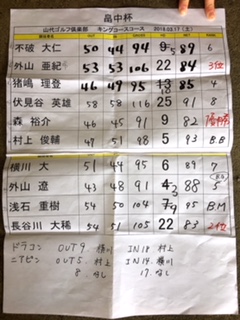 畠中杯
山代ゴルフ倶楽部 キングコースコース 2018.03.17 (土)
不破 大仁 50 44 94 5 89 6
外山 亜紀 53 53 106 22 84 3位
猪嶋 理登 46 49 95 85 4
伏見谷 英雄 58 58 116 25 91 8
森 裕介 46 45 91 9 82 優勝
村上 俊輔 47 51 98 5 93 B.B
横川 大 51 44 95 6 89 7
外山 遼 43 48 91 88 5
浅石 重樹 54 50 104 95 B.M
長谷川 大稀 54 51 105 22 83 2位
ドラコン OUT9. 横川 IN18 村上
ニアピン OUT5. 村上 IN14. 横川
8. なし 17. なし